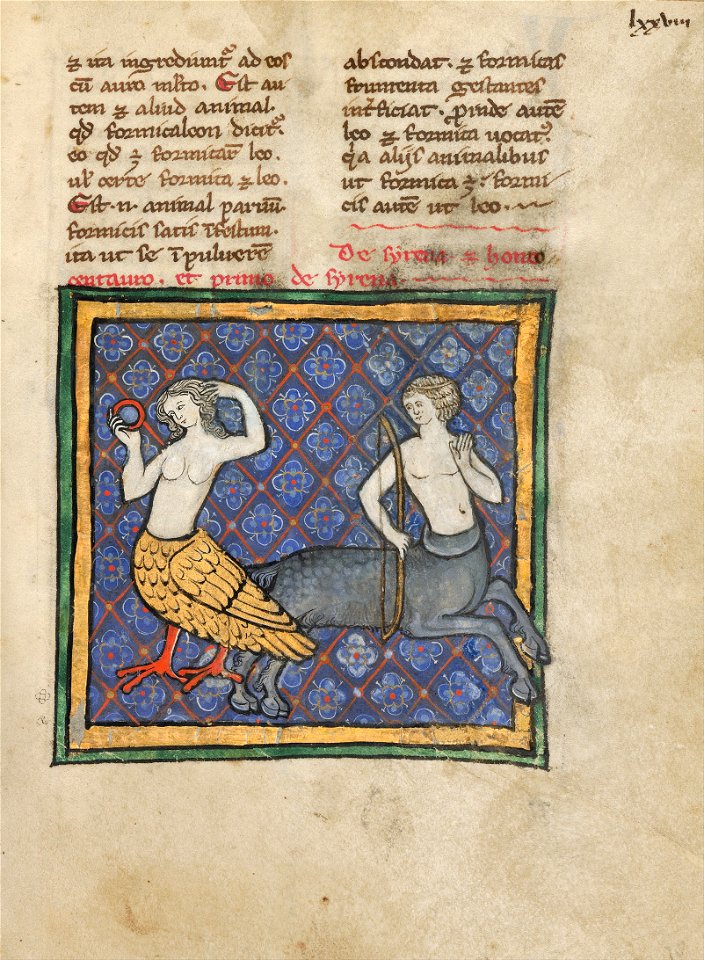 lxxviii
⁊ ita ingrediunt᷑ ad eos
cū auro mixto. Est au
tem ⁊ aliud animal.
qđ formicaleon dicit᷑.
eo qđ ÷ formicaꝝ leo.
ul̓ certe formica ⁊ leo.
Est .n. animal paruū.
formicis satis īfestum.
ita ut se ī puluerē
abscondat. ⁊ formicas
frumenta gestantes
int̓ficiat. ꝓinde autē
leo ⁊ formica uocat᷑.
q̇a alijs animalibus
ut formica ÷. formi
cis autē ut leo.
De syrena ⁊ homo
centauro. et primo de syrena.